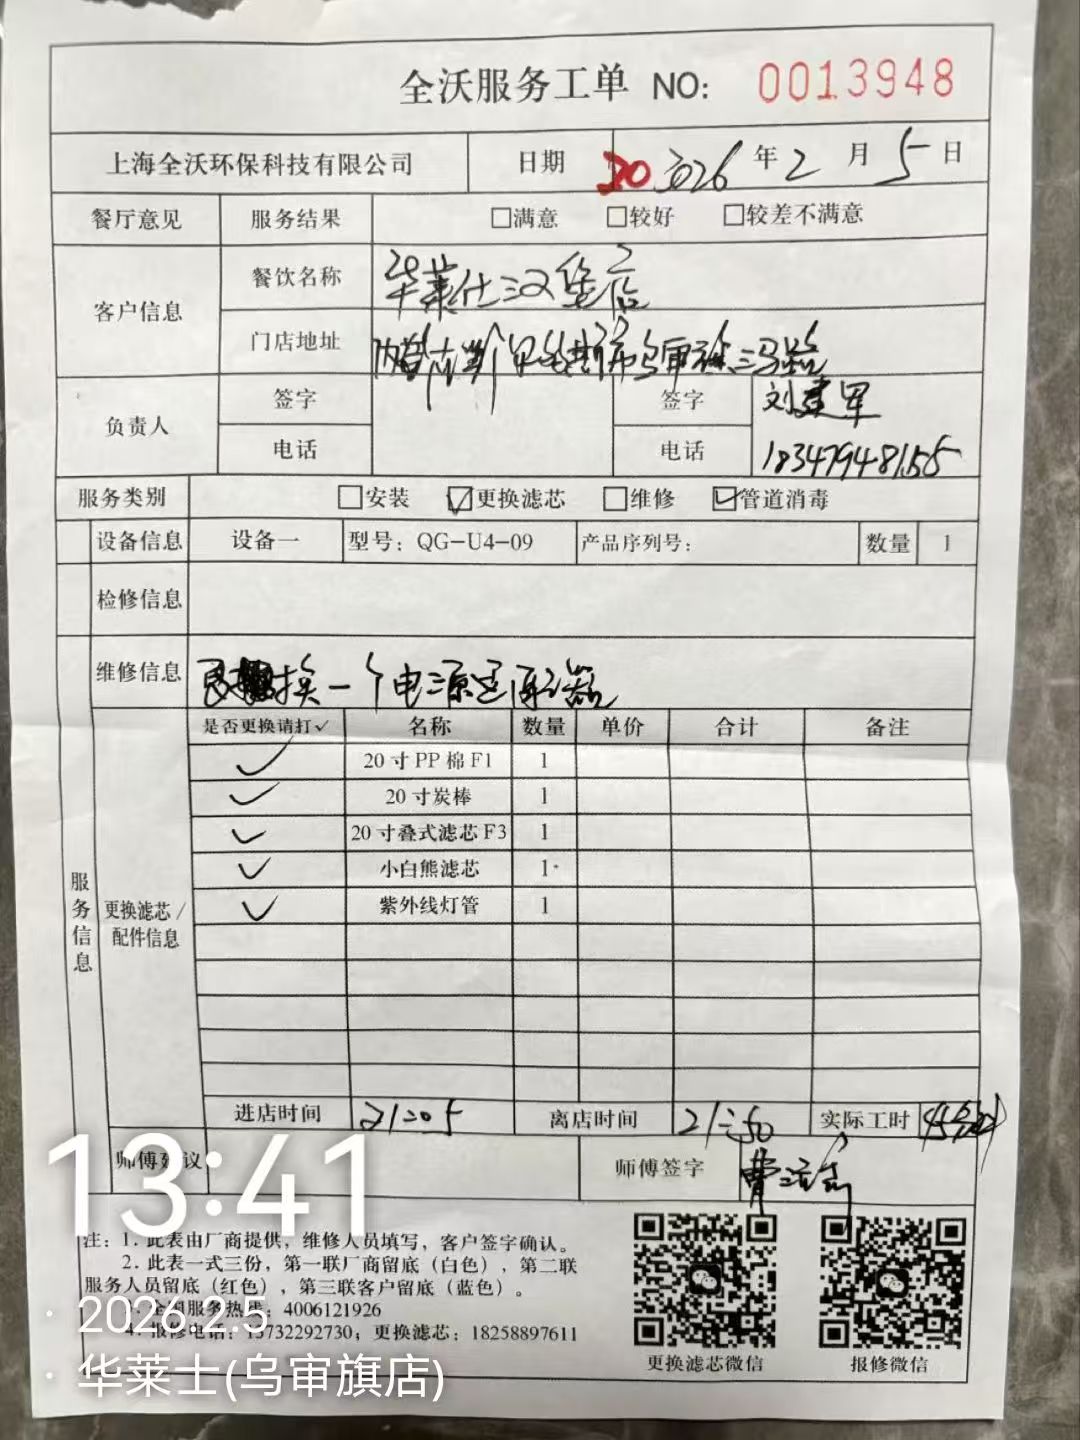 全沃服务工单 NO: 0013948
上海全沃环保科技有限公司 日期 20 2026年2月5日
餐厅意见 服务结果 □满意 □较好 □较差不满意
客户信息 餐饮名称 华莱仕汉堡店
门店地址 内蒙古 鄂尔多斯市乌审旗
负责人 签字 签字 刘建军
电话 电话 18347948155
服务类别 □安装 ☑更换滤芯 □维修 ☑管道消毒
设备信息 设备一 型号: QG-U4-09 产品序列号: 数量 1
检修信息
维修信息 换一个电源适配器
服务信息
更换滤芯/配件信息
是否更换请打✓ 名称 数量 单价 合计 备注
✓ 20寸PP棉F1 1
✓ 20寸炭棒 1
✓ 20寸叠式滤芯F3 1
✓ 小白熊滤芯 1
✓ 紫外线灯管 1
进店时间 21:05 离店时间 21:50 实际工时 45分钟
师傅建议 师傅签字
注: 1. 此表由厂商提供, 维修人员填写, 客户签字确认。
2. 此表一式三份, 第一联厂商留底 (白色), 第二联
服务人员留底 (红色), 第三联客户留底 (蓝色)。
全国服务热线: 4006121926
4. 报修电话: 13732292730; 更换滤芯: 18258897611
更换滤芯微信 报修微信
13:41
· 2026.2.5
· 华莱士(乌审旗店)